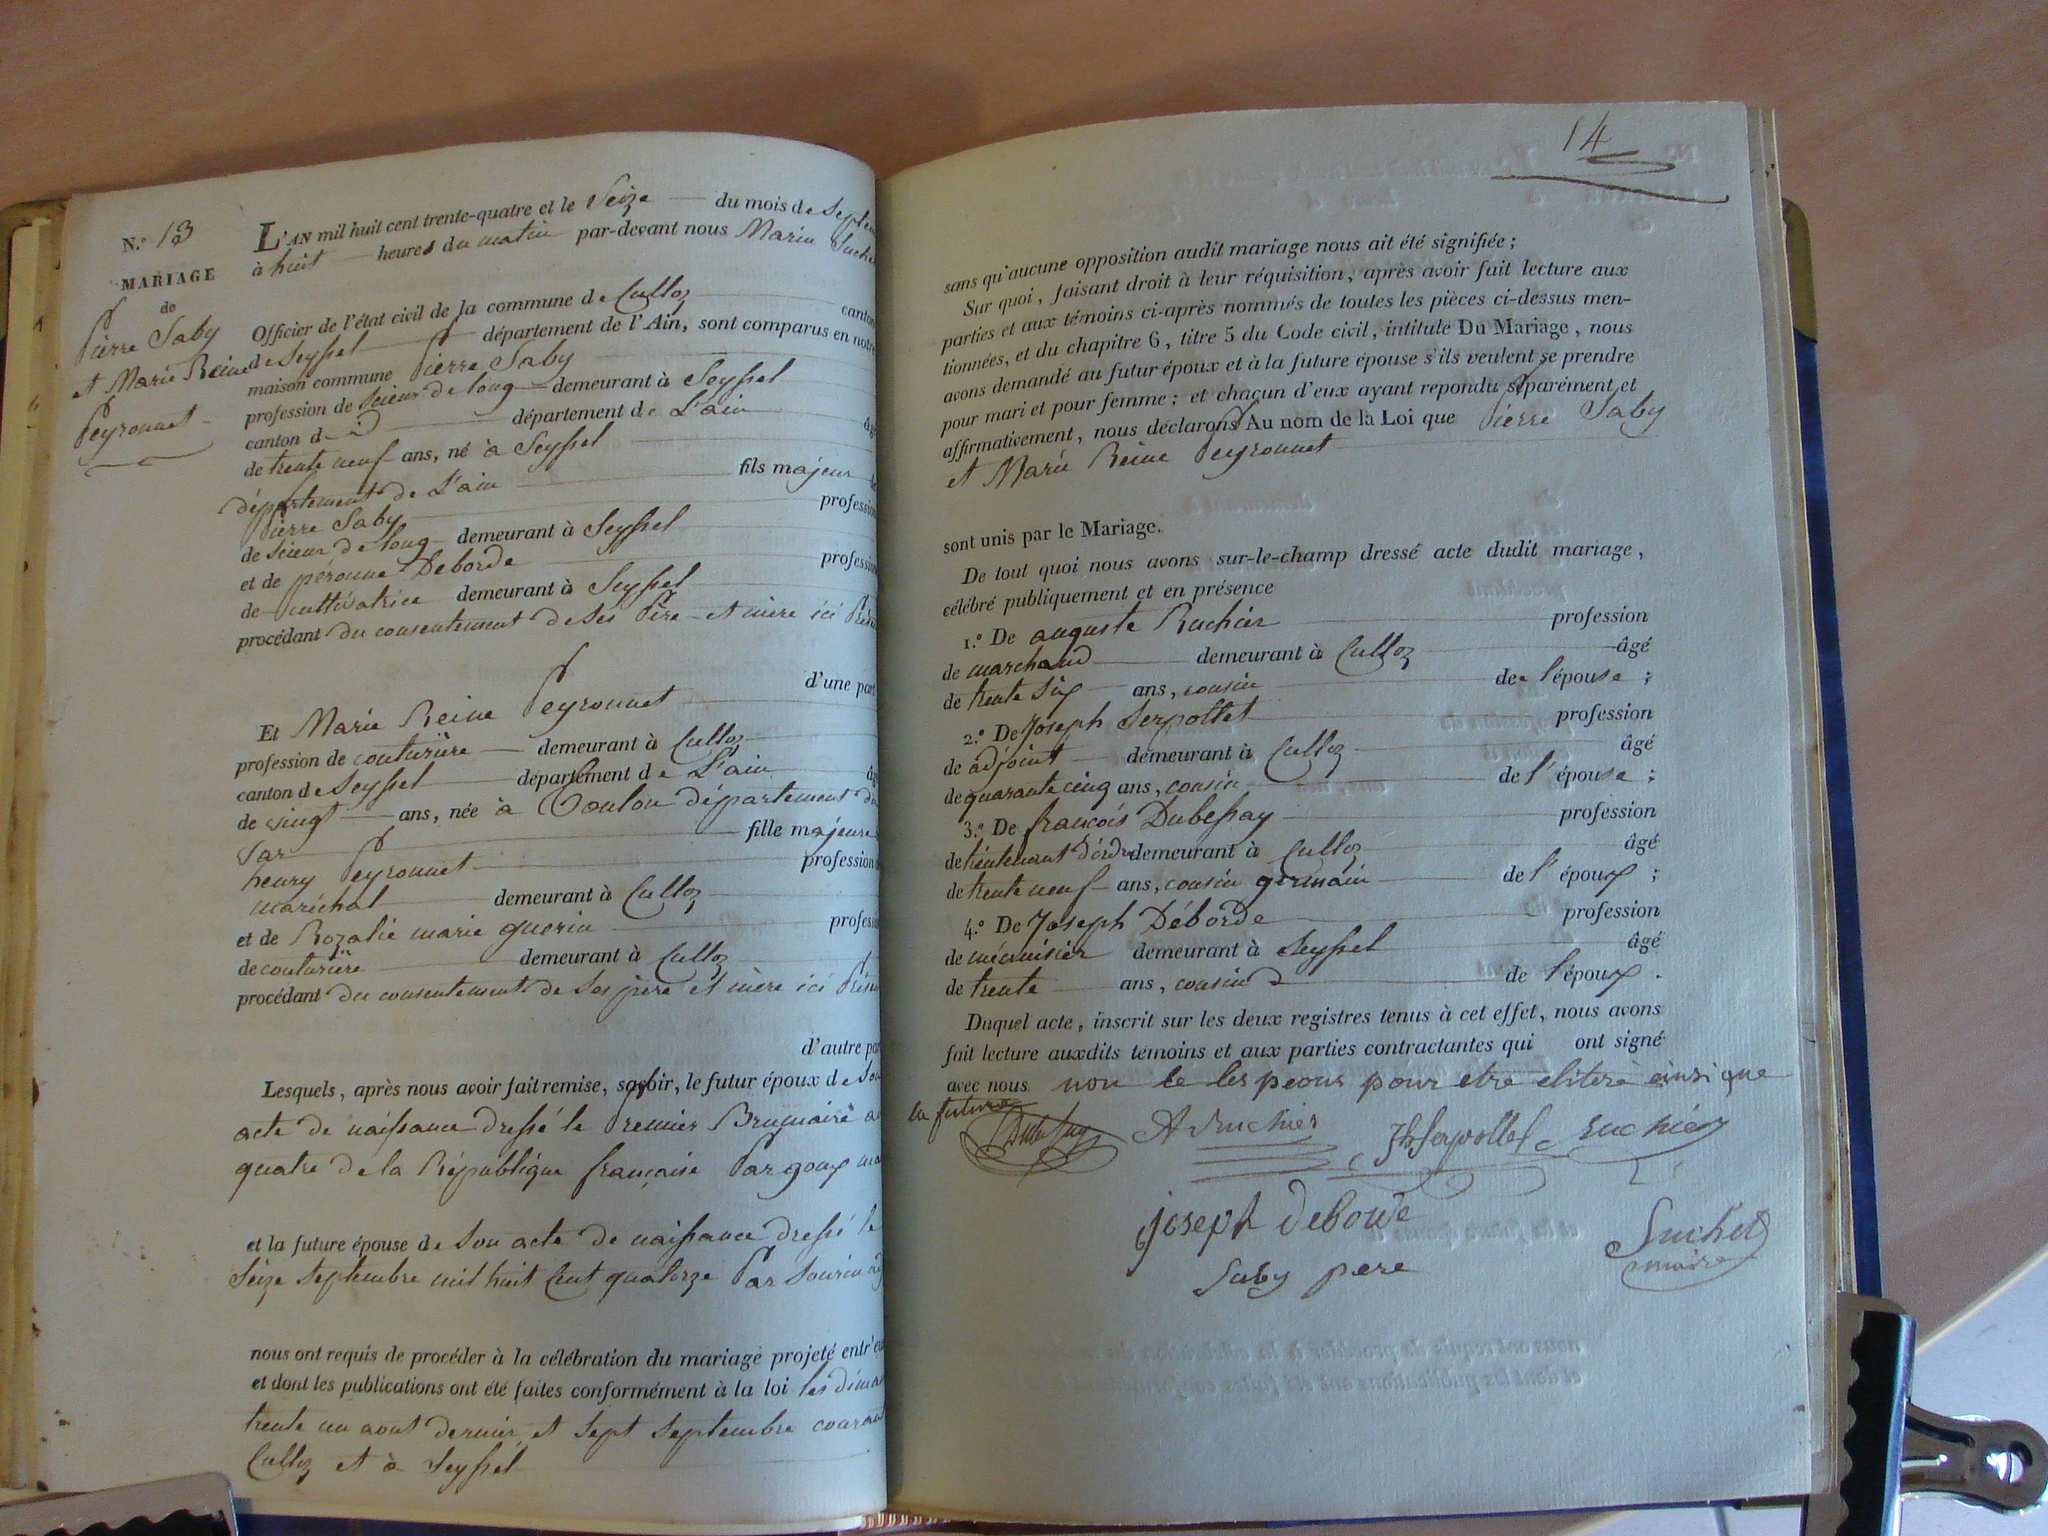 N.° 13
MARIAGE
de
Pierre Saby
et Marie Reine
Peyronnet
L'AN mil huit cent trente-quatre et le Seize du mois de Septem
à huit heures du matin par-devant nous Marin Suchet
Officier de l'état civil de la commune de Culloz canton
de Seyssel département de l'Ain, sont comparus en notre
maison commune Pierre Saby
profession de scieur de long demeurant à Seyssel
canton d département de L'ain âgé
de trente neuf ans, né à Seyssel
département de L'ain fils majeur de
Pierre Saby profession
de scieur de long demeurant à Seyssel
et de péronne Deborde profession
de cultivatrice demeurant à Seyssel
procédant du consentement de ses Père et mère ici Prése
d'une part
Et Marie Reine Peyronnet
profession de couturière demeurant à Culloz
canton de Seyssel département de L'ain âg
de vingt ans, née à Toulon département du
Var fille majeure
henry Peyronnet profession
maréchal demeurant à Culloz
et de Rozalie marie guerin profess
de couturière demeurant à Culloz
procédant du consentement de ses père et mère ici Prése
d'autre par
Lesquels, après nous avoir fait remise, savoir, le futur époux de Son
acte de naissance dressé le Premier Brumaire a
quatre de la République française Par goux ma
et la future épouse de Son acte de naissance dressé le
Seize Septembre mil huit Cent quatorze Par
nous ont requis de procéder à la célébration du mariage projeté entr'eu
et dont les publications ont été faites conformément à la loi les diman
trente un aout dernier et sept septembre courant
Culloz et à Seyssel
14
sans qu'aucune opposition audit mariage nous ait été signifiée ;
Sur quoi, faisant droit à leur réquisition, après avoir fait lecture aux
parties et aux témoins ci-après nommés de toutes les pièces ci-dessus men-
tionnées, et du chapitre 6, titre 5 du Code civil, intitulé Du Mariage, nous
avons demandé au futur époux et à la future épouse s'ils veulent se prendre
pour mari et pour femme ; et chacun d'eux ayant repondu séparément et
affirmativement, nous déclarons Au nom de la Loi que Pierre Saby
et Marie Reine Peyronnet
sont unis par le Mariage.
De tout quoi nous avons sur-le-champ dressé acte dudit mariage,
célébré publiquement et en présence
1.° De auguste Ruchier profession
de marchand demeurant à Culloz âgé
de trente six ans, cousin de l'épouse ;
2.° De Joseph Serpollet profession
de adjoint demeurant à Culloz âgé
de quarante cinq ans, cousin de l'épouse ;
3.° De françois Dubessay profession
de lieutenant d'ordre demeurant à Culloz âgé
de trente neuf ans, cousin germain de l'époux ;
4.° De Joseph Déborde profession
de ménuisier demeurant à Seyssel âgé
de trente ans, cousin de l'époux .
Duquel acte, inscrit sur les deux registres tenus à cet effet, nous avons
fait lecture auxdits témoins et aux parties contractantes qui ont signé
avec nous non pour etre ainsi que
la future
Dubessay A Ruchier Jh Serpollet Ruchier
joseph deborde
Suchet
maire
Saby pere